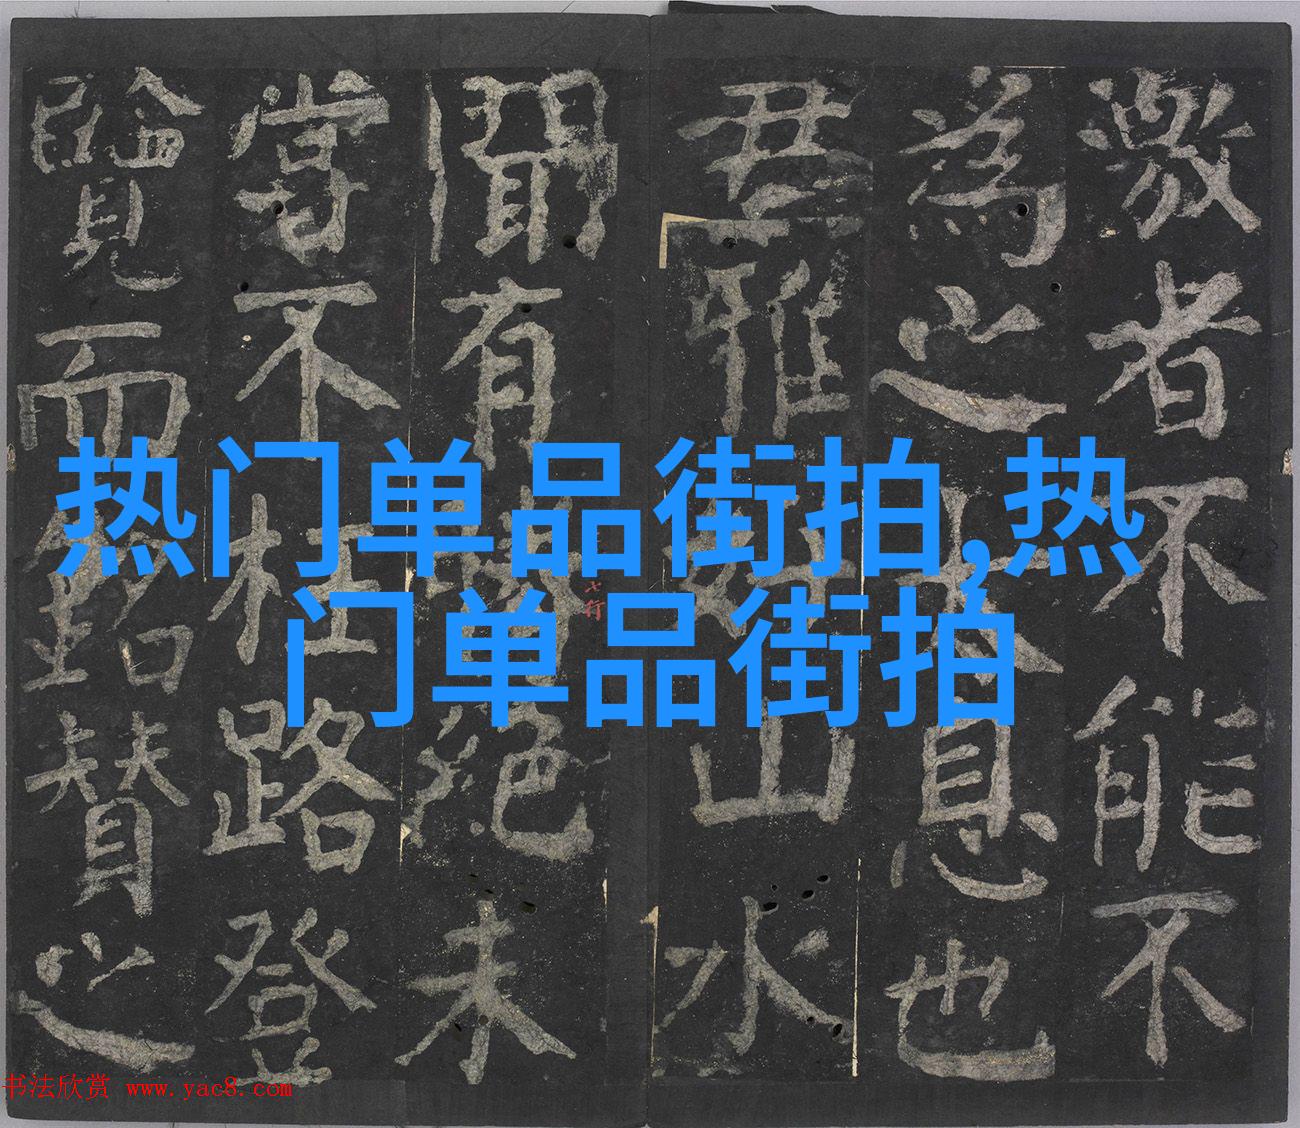 激者不能不
為之太息也
君雅好山水
聞有勝絕未
嘗不枉路登
覽而銘賛之
七行
热门单品街拍,热
门单品街拍
书法欣赏 www.yac8.com